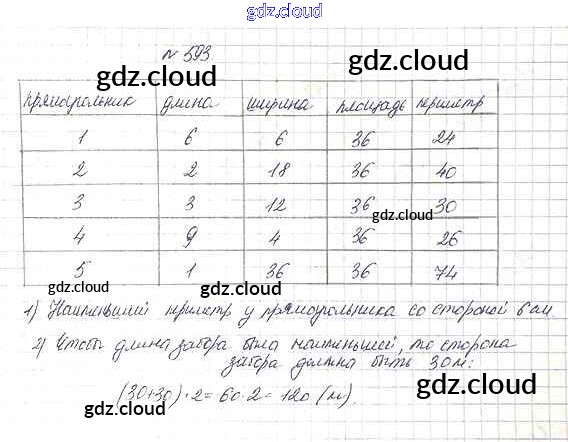 gdz.cloud
№ 593
gdz.cloud gdz.cloud
прямоугольник длина ширина площадь периметр
1 6 6 36 24
2 2 18 36 40
3 3 12 36 30
gdz.cloud
4 9 4 36 26
5 1 36 36 74
gdz.cloud gdz.cloud
1) Наименьший периметр у прямоугольника со стороной 6 см.
2) Чтобы длина забора была наименьшей, то сторона
забора должна быть 30 м:
(30+30)·2=60·2=120 (м).
gdz.cloud gdz.cloud